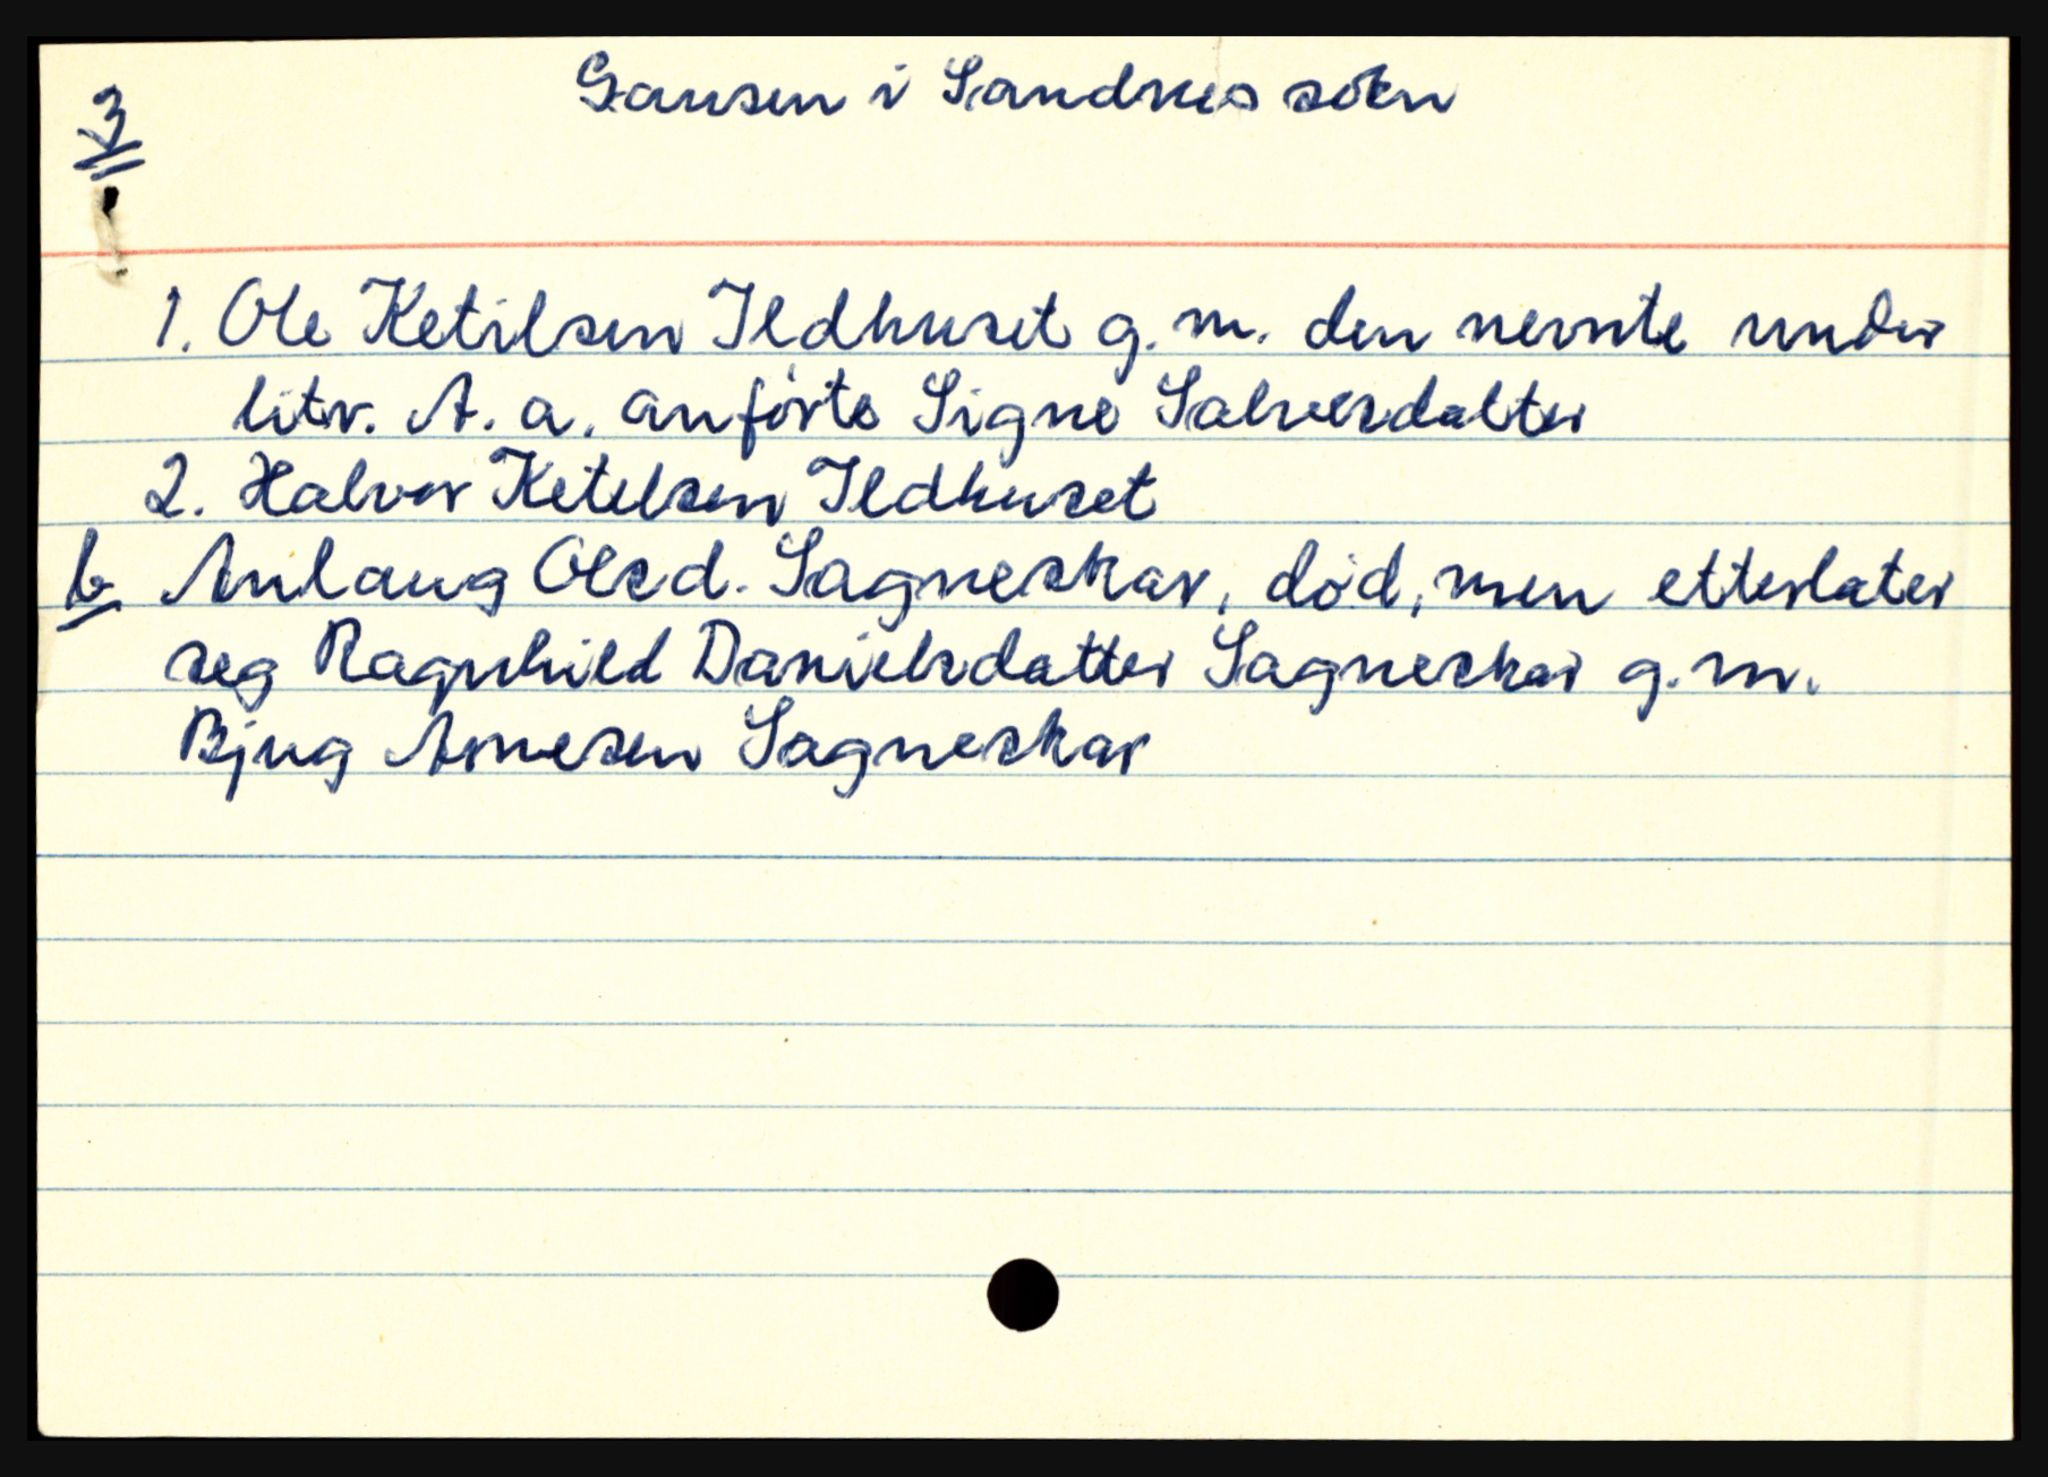 3
Gausen i Sandnes sokn
1. Ole Ketilsen Ildhuset g. m. den nevnte under
litr. A. a. anførte Signe Salvesdatter
2. Halvor Ketelsen Ildhuset
b Anlaug Olsd. Sagneskar, død, men etterlater
seg Ragnhild Danielsdatter Sagneskar g. m.
Bjug Arnesen Sagneskar